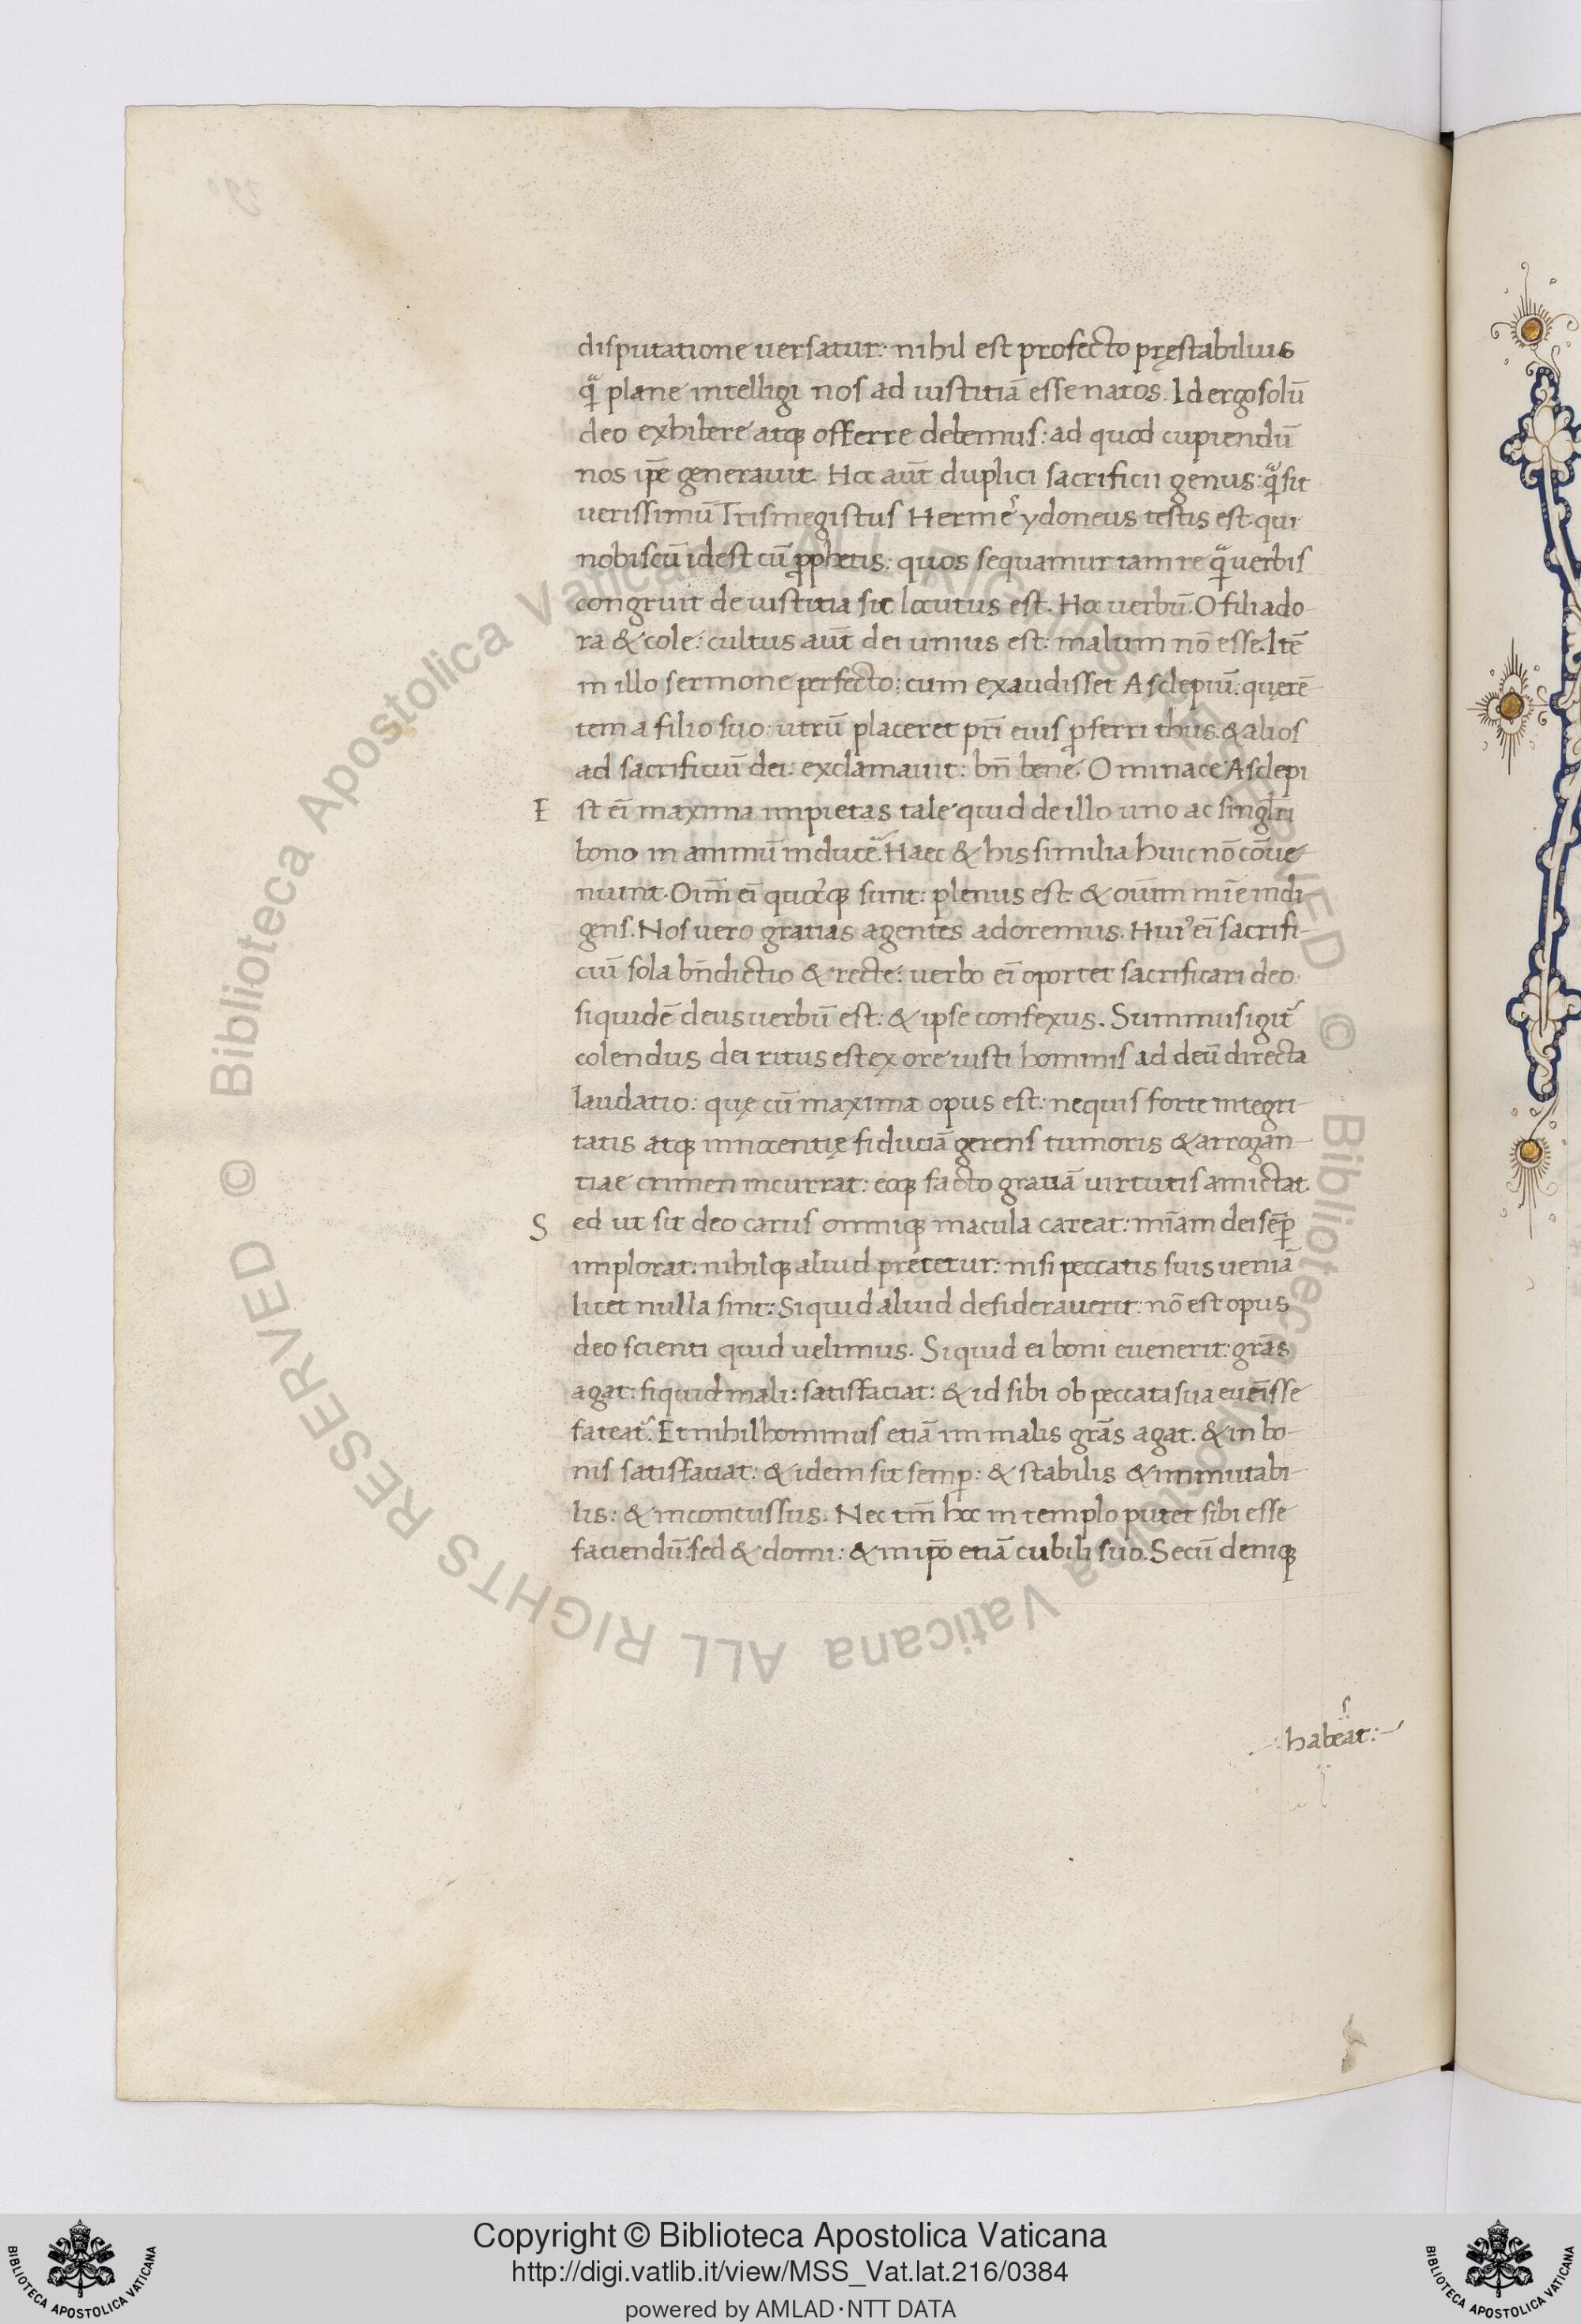 disputatione uersatur: nihil est profecto pręstabilius
qᷓ plane intelligi nos ad iustitiā esse natos. Id ergo solū
deo exhibere atqꝫ offerre debemus: ad quod cupiendū
nos ip̄e generauit. Hoc aūt duplici sacrificii genus: qᷓ sit
uerissimū Trismegistus Hermeˢ ydoneus testis est. qui
nobiscū idest cū ꝓphetis: quos sequamur tam re qᷓ uerbis
congruit de iustitia sit locutus est. Hoc uerbū. O fili ado-
ra & cole: cultus aūt dei unius est: malum nō esse. Itē
in illo sermone perfecto: cum exaudisset Asclepiū: quęrē-
tem a filio suo: utrū placeret pr̄i eius ꝓferri thus. & alios
ad sacrificiū dei: exclamauit: bn̄ bene. O minace Asclepi
E st ei̅ maxima impietas tale quid de illo uno ac singl̄ri
bono in animū inducēᷓ. Haec & his similia huic nō cōue-
niunt. Oim̄ ei̅ quo͛cqꝫ sunt: plenus est: & oīum mīe indi
gens. Nos uero gratias agentes adoremus. Hui᾽ ei̅ sacrifi-
ciū sola bn̄dictio & recte: uerbo ei̅ oportet sacrificari deo.
siquidē deus uerbū est: & ipse confexus. Summus igit᷑
colendus dei ritus est ex ore iusti hominis ad deū directa
laudatio: quę cū maxima opus est: nequis forte integri-
tatis atqꝫ innocentię fiduciā gerens tumoris & arrogan-
tiae crimen incurrat: eoqꝫ facto gratiā uirtutis amictat.
S ed ut sit deo carus omniqꝫ macula careat: mīam dei semꝑ
implorat: nihilqꝫ aliud precetur: nisi peccatis suis ueniā
licet nulla sint: Si quid aliud desiderauerit: nō est opus
deo scienti quid uelimus. Si quid ei boni euenerit: grās
agat: siquid mali: satisfaciat: & id sibi ob peccata sua euēisse
fateat᷑. Et nihilhominus etiā im malis grās agat. & in bo-
nis satisfaciat: & idem sit semꝑ: & stabilis & immutabi-
lis: & inconcussus. Nec tm̄ hoc in templo putet sibi esse
faciendū: sed & domi: & in ip̄o etiā cubili suo. Secū deniqꝫ
s
habeat:
Copyright © Biblioteca Apostolica Vaticana
http://digi.vatlib.it/view/MSS_Vat.lat.216/0384
powered by AMLAD·NTT DATA
BIBLIOTECA APOSTOLICA VATICANA
BIBLIOTECA APOSTOLICA VATICANA
© Biblioteca Apostolica Vaticana ALL RIGHTS RESERVED © Biblioteca Apostolica Vaticana ALL RIGHTS RESERVED